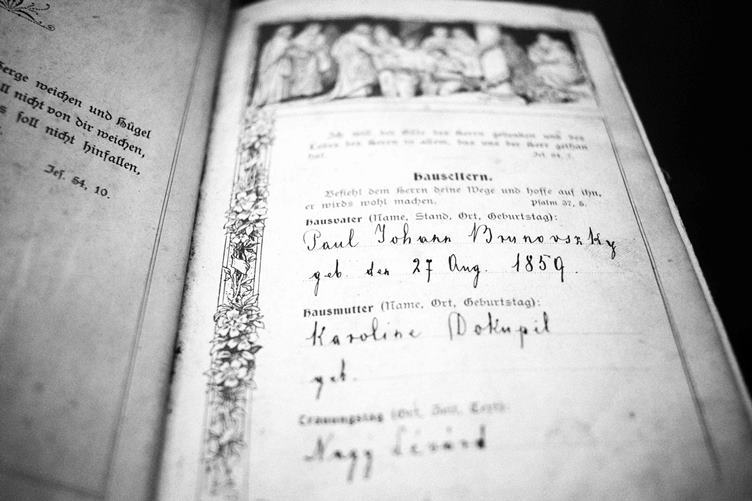 Berge weichen und Hügel
soll nicht von dir weichen,
soll nicht hinfallen,
Jes. 54, 10.
Ich will der Güte des Herrn gedenken und des
Lobes des Herrn in allem, das uns der Herr gethan
hat.
Hauseltern.
Befiehl dem Herrn deine Wege und hoffe auf ihn,
er wirds wohl machen. Psalm 37, 5.
Hausvater (Name, Stand, Ort, Geburtstag):
Paul Johann Brunovszky
geb. den 27 Aug. 1859.
Hausmutter (Name, Ort, Geburtstag):
Karoline Dokupil
geb.
Trauungstag (Ort, Zeit, Text):
Nagy Lévárd